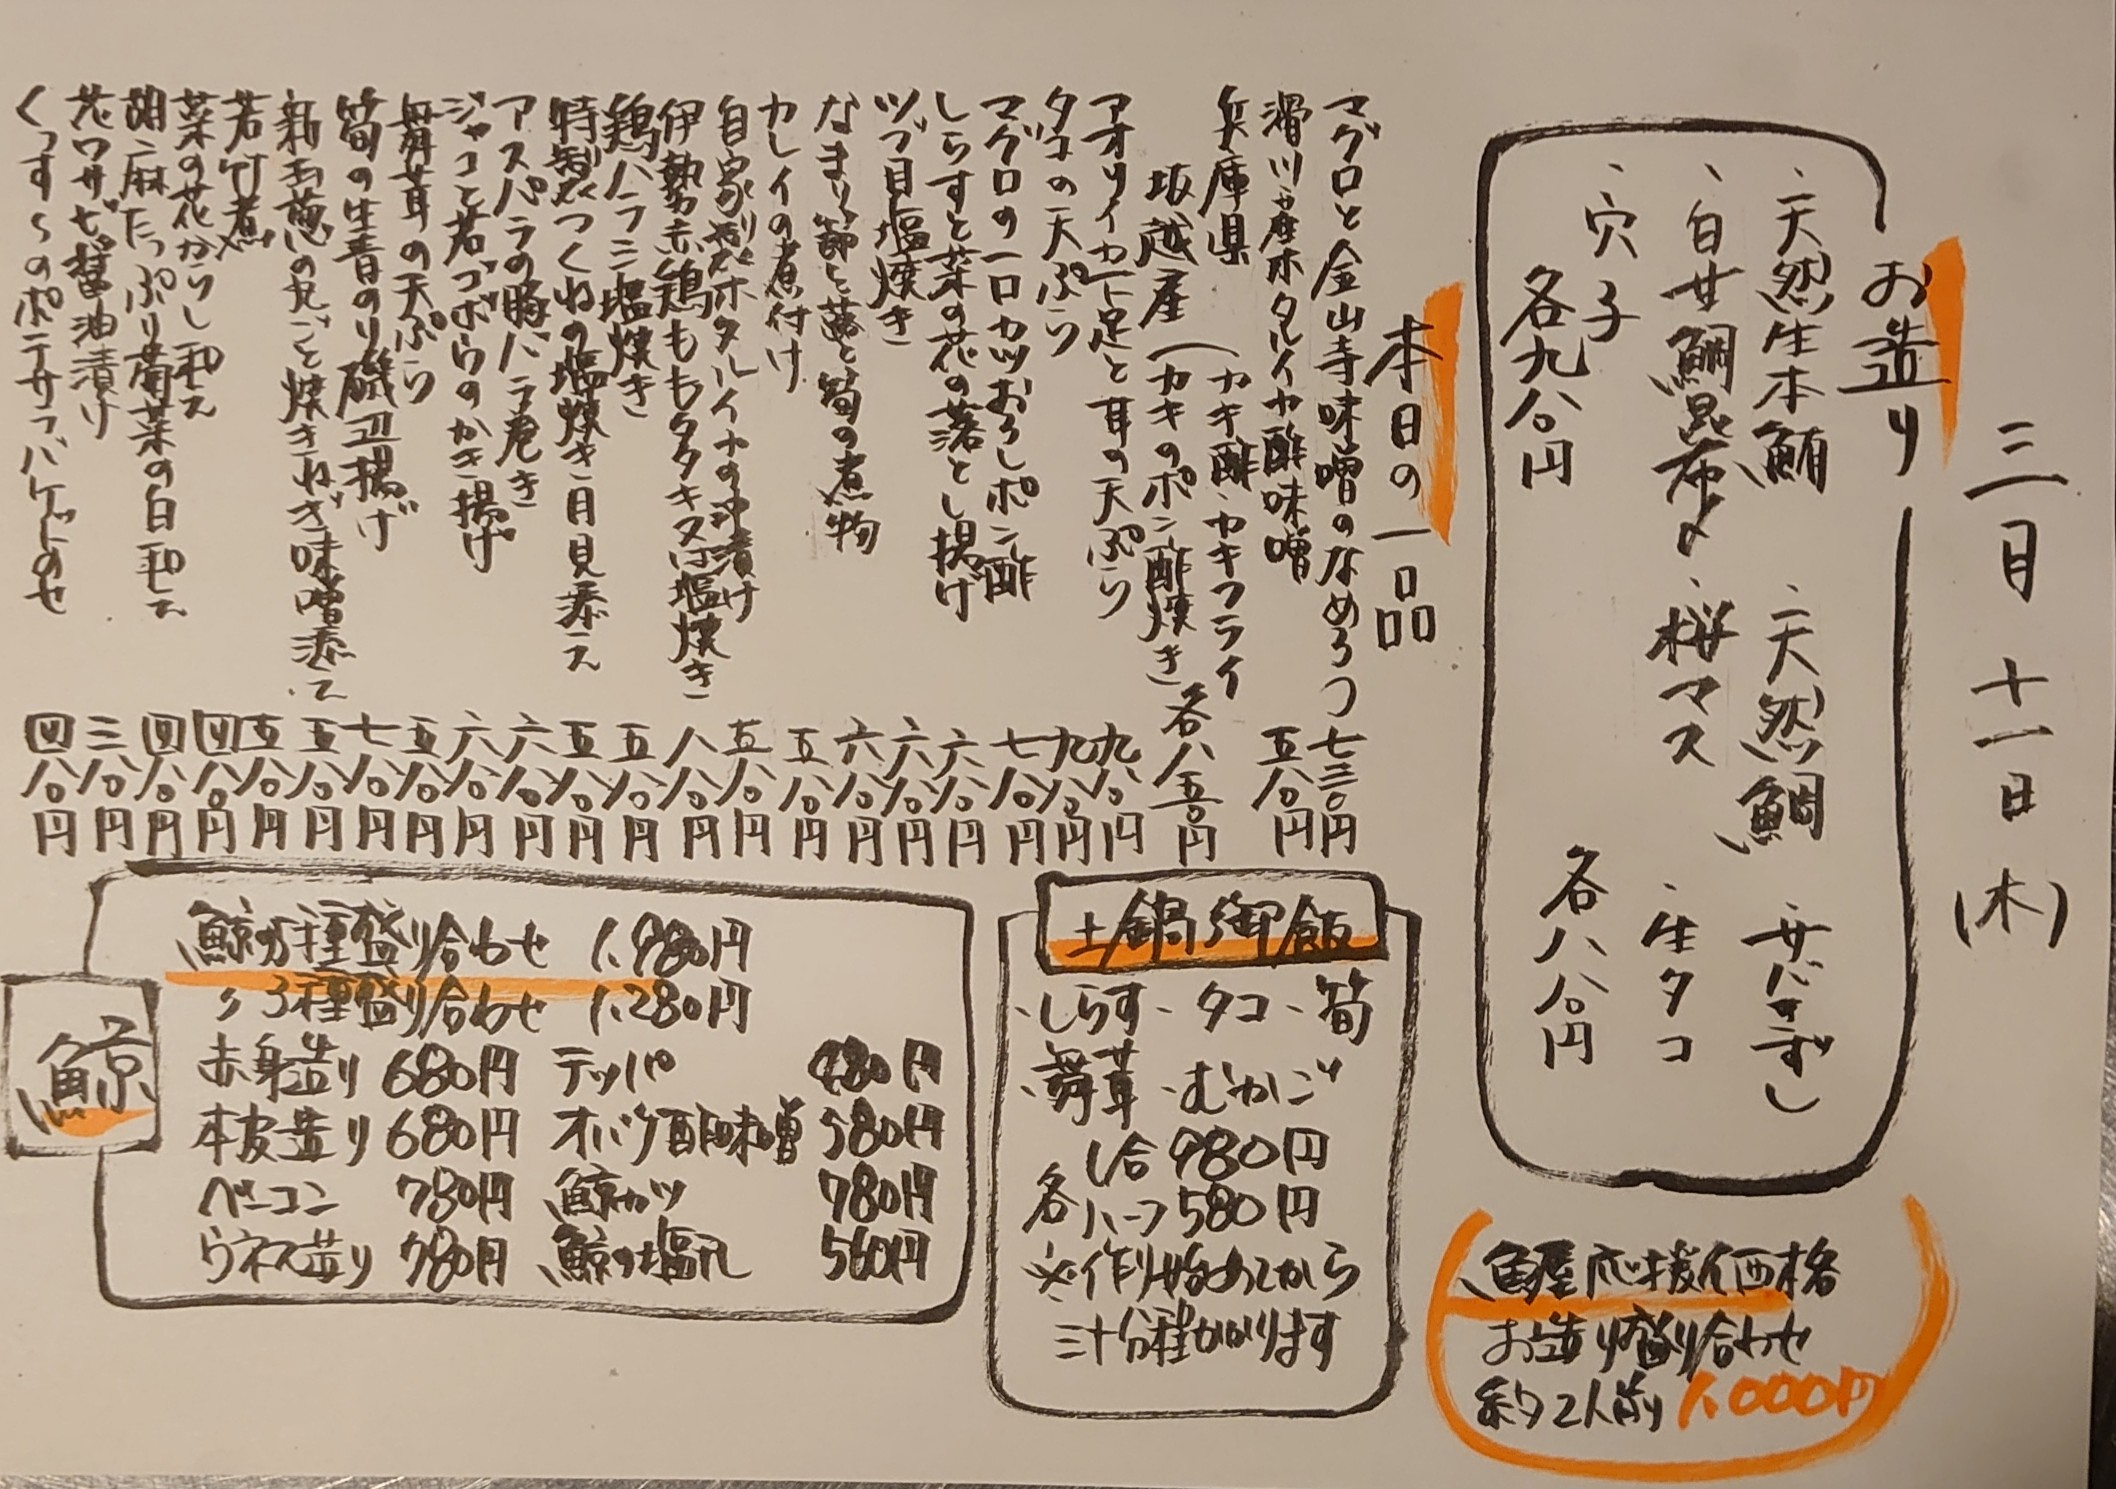 三月十一日(木)
お造り
、天然生本鮪 、天然鯛 、サバきずし
、白甘鯛昆布〆 、桜マス 、生タコ
、穴子
各九八〇円 各八八〇円
本日の一品
マグロと金山寺味噌のなめろう 七三〇円
滑川産ホタルイカ酢味噌 五八〇円
兵庫県 (カキ酢・カキフライ
坂越産 (カキのポン酢焼き 各八五〇円
アオリイカ下足と耳の天ぷら 九八〇円
タコの天ぷら 九八〇円
マグロの一口カツおろしポン酢 七八〇円
しらすと菜の花の落とし揚げ 六八〇円
ツブ貝塩焼き 六八〇円
なまり節と蕗と筍の煮物 六八〇円
カレイの煮付け 五八〇円
自家製ホタルイカの沖漬け 五八〇円
伊勢赤鶏ももタタキ又は塩焼き 八八〇円
鶏ハラミ塩焼き 五八〇円
特製つくねの塩焼き月見添え 五八〇円
アスパラの豚バラ巻き 六八〇円
ジャコと若ゴボウのかき揚げ 六八〇円
舞茸の天ぷら 五八〇円
筍の生青のり磯辺揚げ 七八〇円
新玉葱の丸ごと焼きねぎ味噌添え 五八〇円
若竹煮 五八〇円
菜の花からし和え 四八〇円
胡麻たっぷり菊菜の白和え 四八〇円
花ワサビ醤油漬け 三八〇円
くつすぐのポテサラバゲットのせ 四八〇円
土鍋御飯
、しらす 、タコ 、筍
、舞茸 、むかご
1合 980円
各ハーフ 580円
※作り始めてから
三十分程かかります
鯨
鯨の5種盛り合わせ 1,980円
〃 3種盛り合わせ 1,280円
赤身造り 680円 テッパ 480円
本皮造り 680円 オバケ酢味噌 580円
ベーコン 730円 鯨カツ 780円
ウネス造り 780円 鯨の塩〆 560円
魚屋応援価格
お造り盛り合わせ
約2人前 1,000円